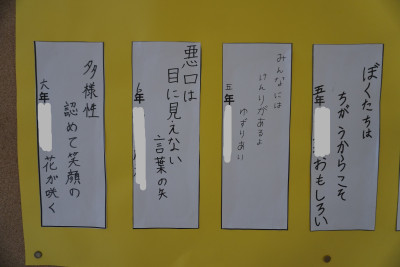 ぼくたちは
ちがうからこそ
おもしろい
五年
みんなには
けんりがあるよ
ゆずりあい
五年
悪口は
目に見えない
言葉の矢
6年
多様性
認めて笑顔の
花が咲く
六年